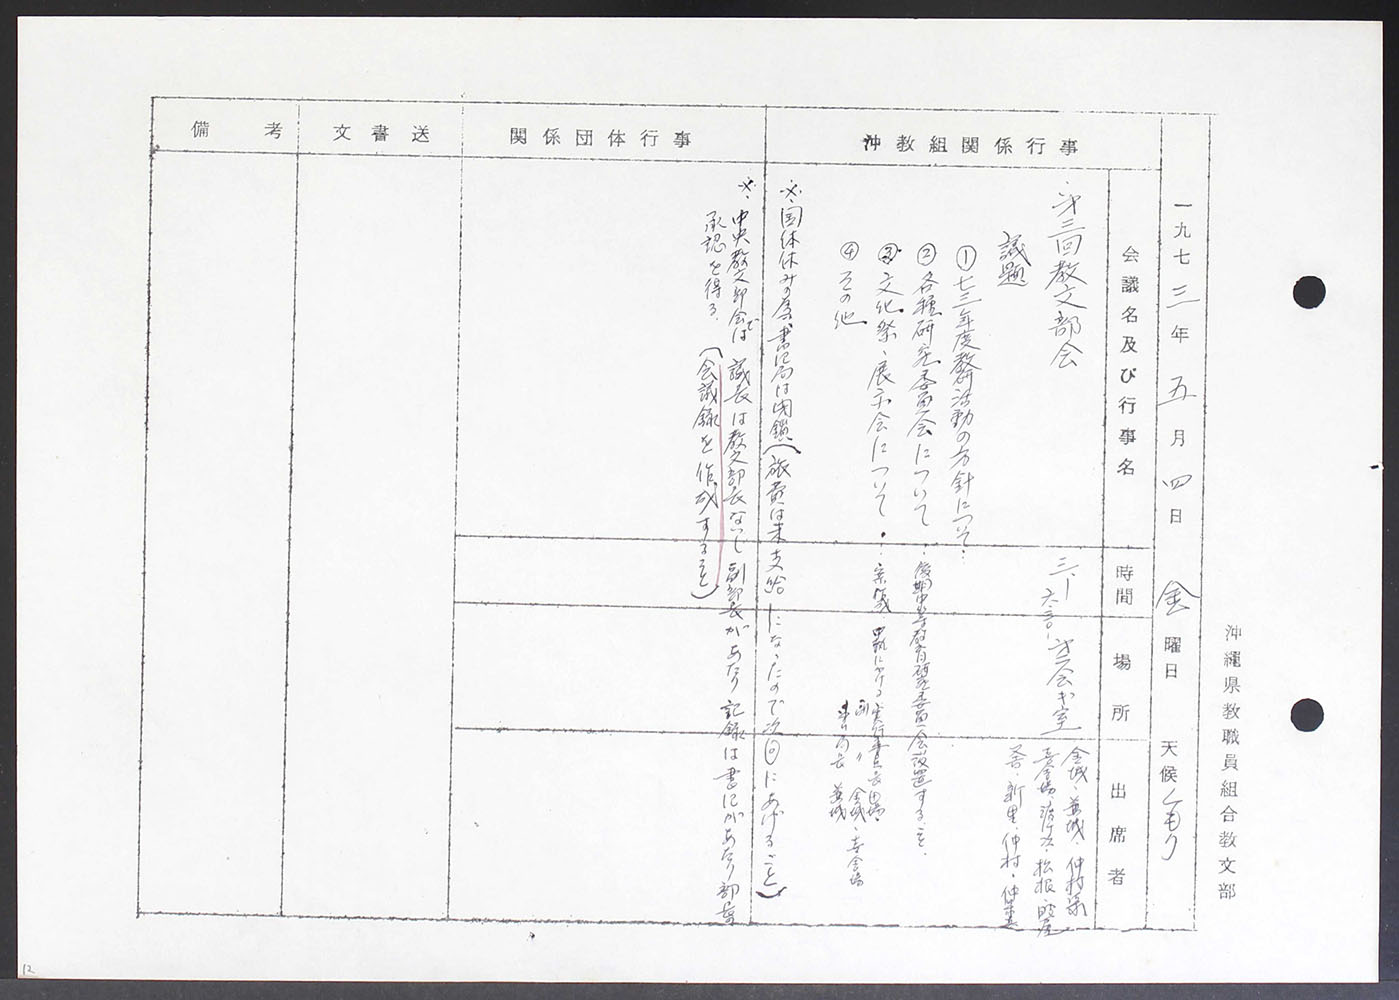 沖縄県教職員組合教文部
一九七三年五月四日 金曜日 天候くもり
会議名及び行事名 時間 場所 出席者
沖教組関係行事
関係団体行事
文書送
備考
第三回教文部会 三、― 六、三〇
金城、兼城、仲村渠
新里、仲村
議題
① 七三年度教研活動の方針について.
② 各種研究委員会について. 後期中等教育研究委員会設置すること.
③ 文化祭、展示会について.
④ その他
兼城
※、国体休みの為、書記局は閉鎖(旅費は未支給になったので次回にあげること)
※、中央教文部会では議長は教文部長ないし副部長があたり記録は書記があたり部長
承認を得る.(会議録を作成すること)
12